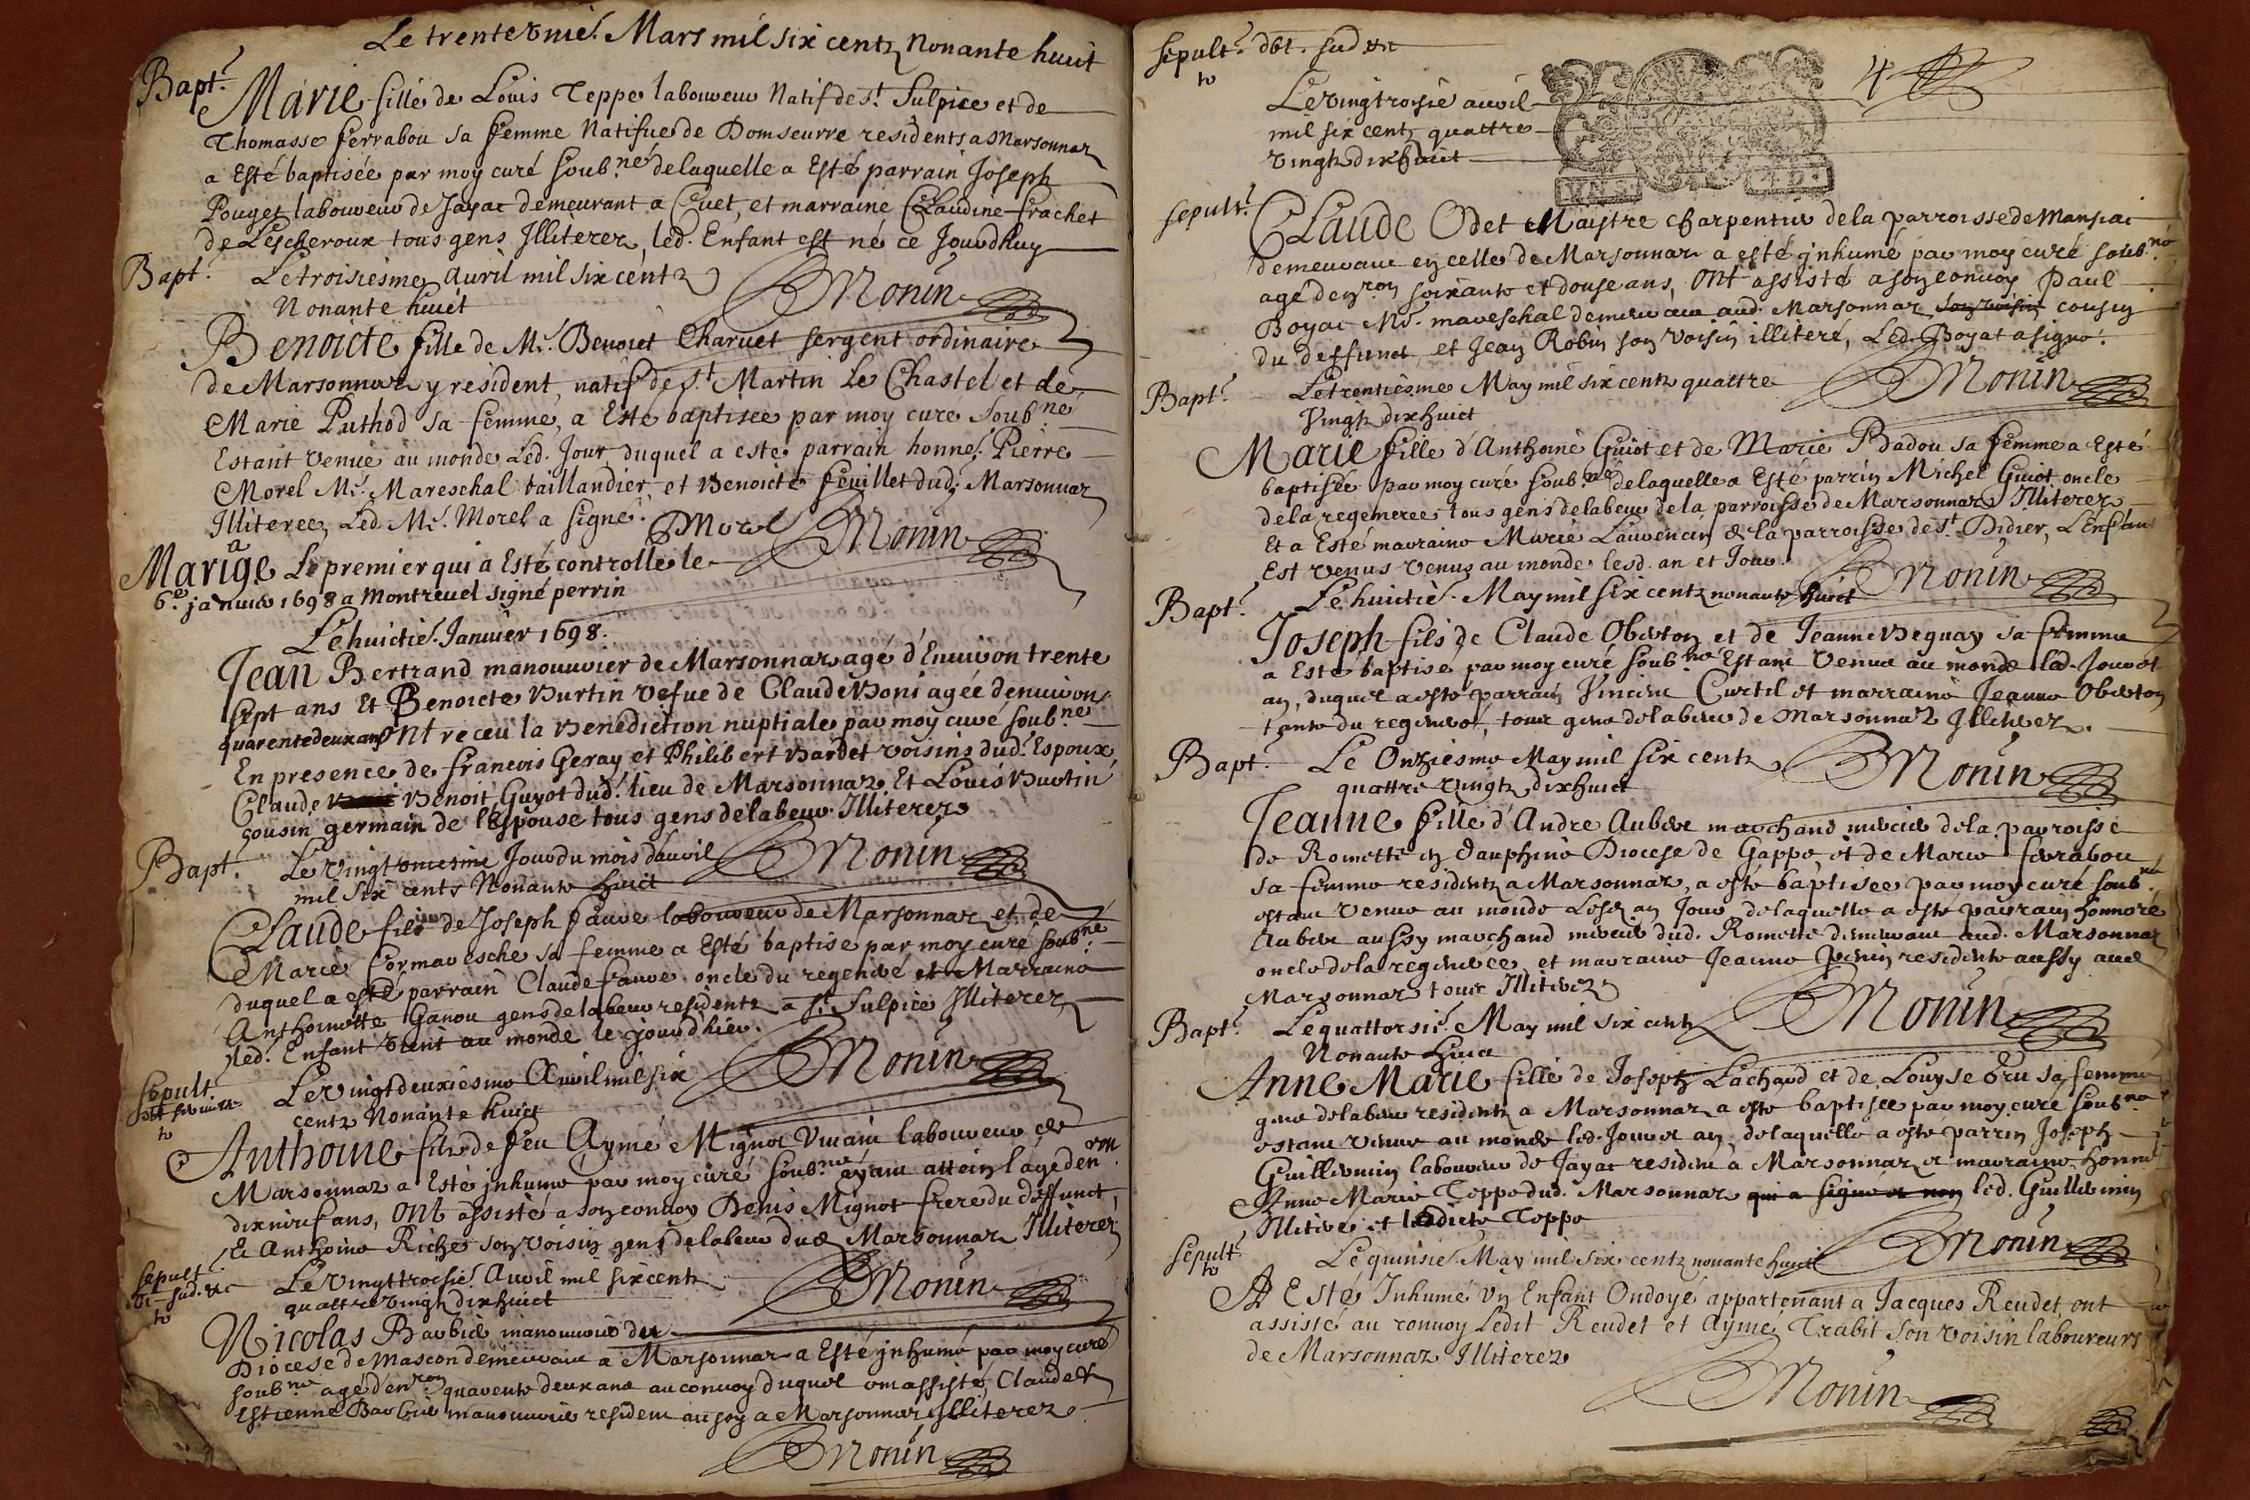 Le trente vnie. Mars mil six centz Nonante huict
Bapt.
Marie fille de Loüis Teppe laboureur Natif de st. Sulpice et de
Thomasse ferrabou sa femme Natifue de Domseurre residents a Marsonnaz
a Esté baptisée par moy curé soub.né de laquelle a Esté parrain Joseph
Pouget laboureur de Jayac demeurant a Cuet, et marraine Claudine frachet
de Lescheroux tous gens Jlliterez, led. Enfant est né ce Jourdhuy
Bapt. Le troisiesme auril mil six centz
Nonante huict
Monin
Benoicte fille de Me. Benoict Charuet sergent ordinaire
de Marsonnaz y resident, natif de st Martin Le Chastel et de
Marie Puthod sa femme, a Esté baptisée par moy curé soub.né
Estant venüe au monde Led. Jour duquel a esté parrain honne. Pierre
Morel Me. Mareschal taillandier, et Benoicte feuillet dud. Marsonnaz
Jlliterez, Led. Me. Morel a signé. PMorel Monin
Mariage Le premier qui a Esté controllé le
6e. januier 1698 a Montreuel signé perrin
Le huictie. Januier 1698.
Jean Bertrand manouurier de Marsonnaz agé d'Enuiron trente
sept ans Et Benoicte Burtin vefue de Claude Boni agée denuiron
quarente deux ans ont receu la Benediction nuptiale par moy curé soub.né
En presence de francois Geray et Philibert Bardet voisins dud. Espoux,
Claude Benoit Guyot dud. lieu de Marsonnaz Et Loüis Burtin
cousin germain de l'Espouse tous gens de labeur Jlliterez
Bapt. Le vingt vniesme Jour du mois dauril
mil six cents Nonante huict
Monin
Claude fils de Joseph faure laboureur de Marsonnaz et de
Marie Cormaresche sa femme a Esté baptisé par moy curé soub.né
duquel a esté parrain Claude faure oncle du regeneré et Marraine
Anthoinette Ganou gens de labeur residentz a st. Sulpice Jlliterez,
led. Enfant vint au monde le jour d'hier.
Monin
Sepult. Le vingt deuxiesme Auril mil six
centz Nonante huict
Anthoine fils de feu Aymé Mignot Viuant laboureur de
Marsonnaz a Esté jnhumé par moy curé soub.né ayant attein l'age den.ron
dix neuf ans, ont assisté a son conuoy Denis Mignot frere du deffunct,
Et Anthoine Riche son voisin gens de labeur dud. Marsonnaz Jlliterez
Monin
sepult. Le vingt troisie. Auril mil six centz
quattre vingtz dix huict
Nicolas Barbier manouurier du
Diocese de Mascon demeurant a Marsonnaz a Esté jnhumé par moy curé
soub.né agé d'en.ron quarente deux ans au conuoy duquel ont assisté, Claude &
Estienne Barbier manouuriers residents aussy a Marsonnaz Jlliterez
Monin
Sepult. dbt. sud &c
to
Le vingt troisie auril
mil six centz quattre
vingtz dix huict
4
sepult.
Claude Odet Maistre charpentier de la parroisse de Mansiac
demeurant en celle de Marsonnaz a esté jnhumé par moy curé soub.né
agé den.ron soixante et douse ans, ont assisté a son conuoy Paul
Boyat Me. mareschal demeurant aud. Marsonnaz son voisin cousin
du deffunct, et Jean Robin son voisin illiteré, Led. Boyat a signé.
Monin
Bapt. Le trentiesme May mil six centz quattre
Vingtz dix huict
Marie fille d'Anthoine Guiot et de Marie Badou sa femme a Esté
baptisée par moy curé soub.né de laquelle a Esté parrin Michel Guiot oncle
de la regeneree, tous gens de labeur de la parroisse de Marsonnaz Jlliterez
Et a Esté marraine Marie Lauvencin de la parroisse de st. Didier, L'Enfant
Est venus venus au monde lesd. an et Jour.
Monin
Bapt. Le huictie. May mil six centz nonante huict
Joseph fils de Claude Oberton et de Jeanne Beguay sa femme
a Esté baptisé par moy curé soub.né Estant venue au monde led. Jour et
an, duquel a esté parrain Vincent Curtil et marraine Jeanne Oberton
tante du regeneré, tous gens de labeur de Marsonnaz Jlliterez.
Bapt. Le Onziesme May mil six centz
quattre vingtz dix huict
Monin
Jeanne fille d'Andre Aubert marchand mercier de la parroisse
de Romette en dauphiné Diocese de Gappe et de Marie ferrabou
sa femme residentz a Marsonnaz, a esté baptisée par moy curé soub.né
estant venue au monde Lesd. an Jour de laquelle a esté parrain honnoré
Aubert aussy marchand mercier dud. Romette demeurant aud. Marsonnaz
oncle de la regenerée, et marraine Jeanne Perrin residente aussy aud.
Marsonnaz tous Jlliterez
Monin
Bapt. Le quattorsie. May mil six centz
Nonante huict
Anne Marie fille de Joseph Lachaud et de Louyse Bru sa femme
gens de labeur residentz a Marsonnaz a esté baptisée par moy curé soub.né
estant venue au monde led. Jour et an, de laquelle a esté parrin Joseph
Guillermin laboureur de Jayat resident à Marsonnaz et marraine honne.
Anne Marie Teppe dud. Marsonnaz qui a signé et non led. Guillermin
Jlliteré et ladicte Teppe
Monin
Sepult. Le quinsie. May mil six centz nonante huict
to
A Esté Inhumé Vn Enfant Ondoyé appartenant a Jacques Reudet ont
assisté au conuoy Ledit Reudet et Aymé Trabit son voisin laboureurs
de Marsonnaz Jlliterez
Monin